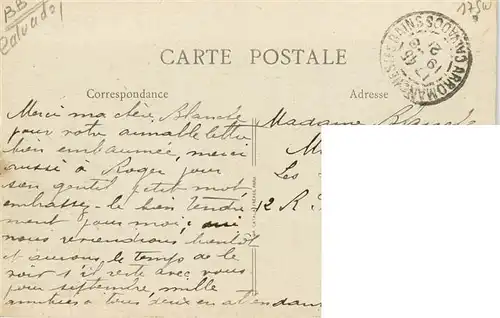 BB
Calvados
175W
CARTE POSTALE
ARROMANCHES-LES-BAINS CALVADOS
Correspondance
Adresse
Merci ma chère Blanche
pour votre aimable lettre
bien embaumée, merci
aussi à Roger pour
son gentil petit mot
embrassez-le bien tendre
ment pour moi; oui
nous reviendrons bientôt
et aurons le temps de le
voir s'il reste avec vous
pour septembre, mille
amitiés à tous deux en attendant
Madame Blanche
M
Les
2 R